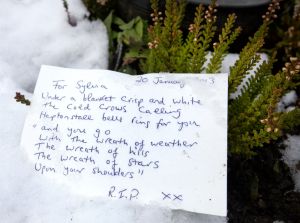 For Sylvia 20 January
Under a blanket crisp and white
The Cold Crows Calling
Heptonstall bells ring for you
"and you go
With The Wreath of weather
The wreath of hills
The wreath of stars
Upon your shoulders"
R.I.P. xx